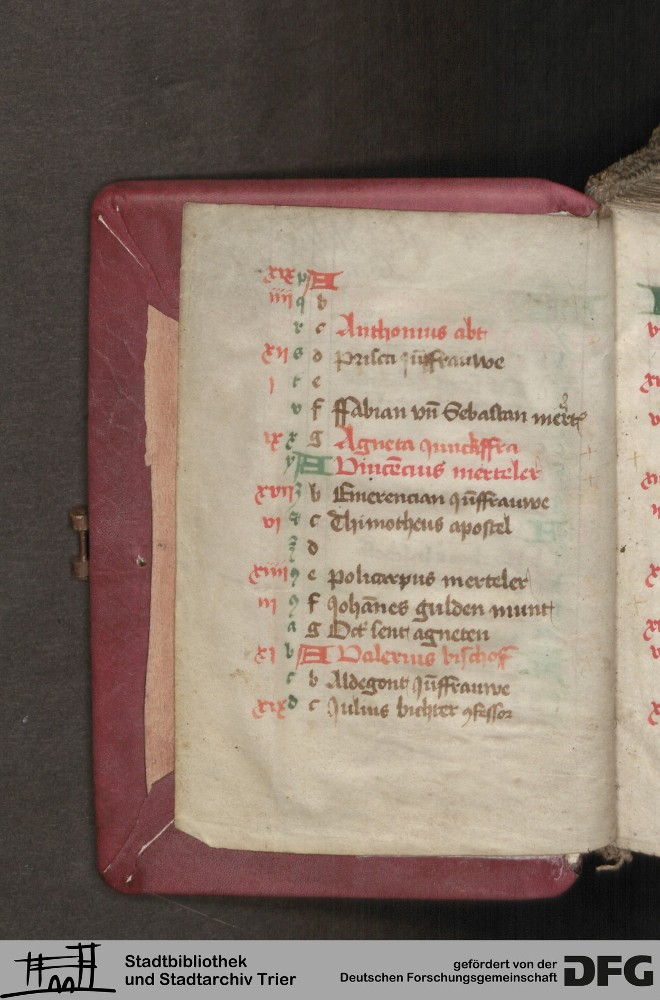 xix p A
iiii q b
r c Anthonius abt
xii s d Prisca jūffrauwe
i t e
v f ffabian vn̄ Sebastian mert
ix x g Agneta junckffra
y A Vincēcius merteler
xvii z b Emerencian jūffrauwe
vi c Thimotheus apostel
d
xiiii e policarpus merteler
iii f Johānes gulden munt
a g Oct sent agneten
xi b A Valerius bischof
c b Aldegont jūffrauwe
xix d c Julius bichter ꝯfessor
Stadtbibliothek
und Stadtarchiv Trier
gefördert von der
Deutschen Forschungsgemeinschaft
DFG